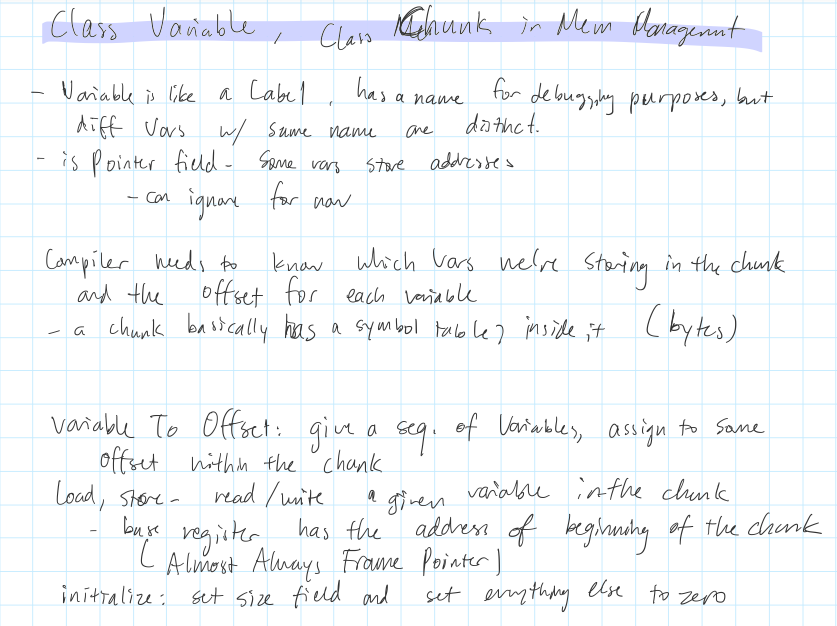 Class Variable, Class Chunk in Mem Management
- Variable is like a Label, has a name for debugging purposes, but
diff Vars w/ same name are distinct.
- is Pointer field - Some vars store addresses
- can ignore for now
Compiler needs to know which Vars we're storing in the chunk
and the offset for each variable
- a chunk basically has a symbol table inside it (bytes)
Variable To Offset: give a seq. of Variables, assign to some
offset within the chunk
load, store - read/write a given variable in the chunk
- base register has the address of beginning of the chunk
(Almost Always Frame Pointer)
initialize: set size field and set everything else to zero